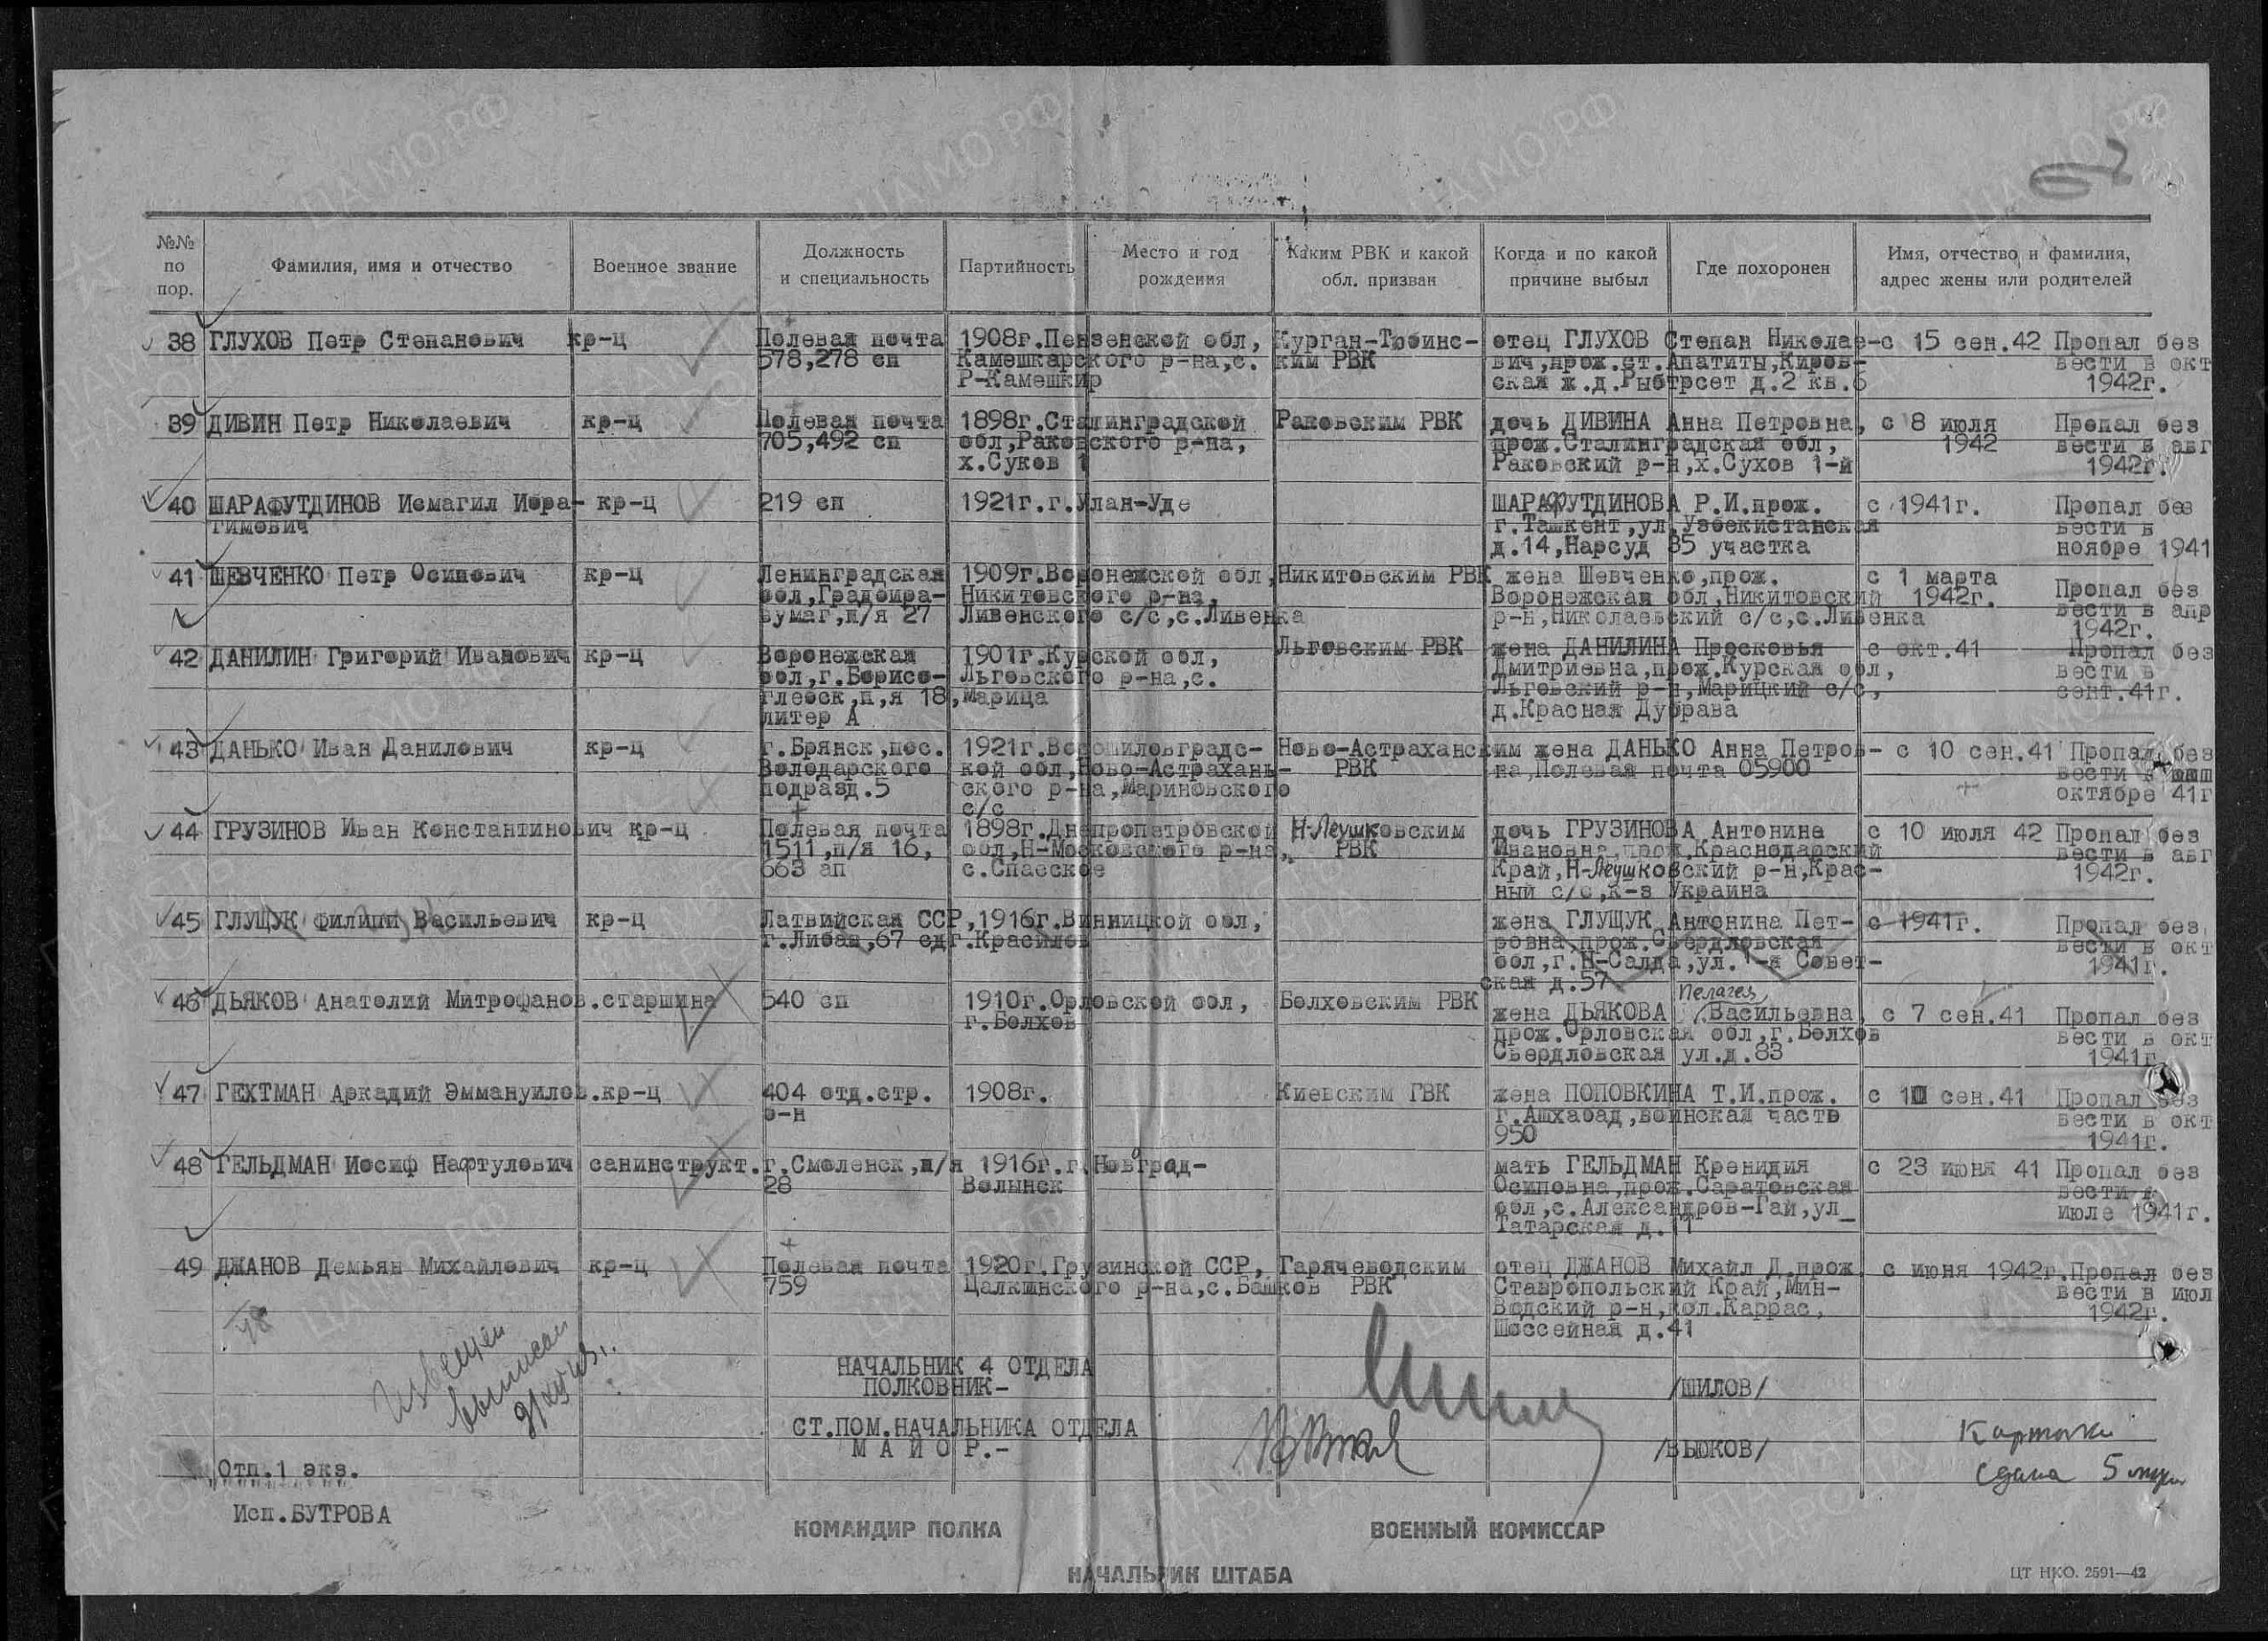 №№ по пор. Фамилия, имя и отчество Военное звание Должность и специальность Партийность Место и год рождения Каким РВК и какой обл. призван Когда и по какой причине выбыл Где похоронен Имя, отчество и фамилия, адрес жены или родителей
38 ГЛУХОВ Петр Степанович кр-ц Полевая почта 1908г.Пензенской обл, Курган-Тюбинс- отец ГЛУХОВ Степан Николае- с 15 сен.42 Пропал без
578,278 сп Камешкарского р-на,с. ким РВК вич,прож.ст.Апатиты,Киров- вести в окт
Р-Камешкир ская ж.д.Рыбтрест д.2 кв.6 1942г.
39 ДИВИН Петр Николаевич кр-ц Полевая почта 1898г.Сталинградской Раковским РВК дочь ДИВИНА Анна Петровна, с 8 июля Пропал без
705,492 сп обл,Раковского р-на, прож.Сталинградская обл, 1942 вести в авг
х.Суков 1 Раковский р-н,х.Сухов 1-й 1942г.
40 ШАРАФУТДИНОВ Исмагил Ибра- кр-ц 219 сп 1921г.г.Улан-Уде ШАРАФУТДИНОВА Р.И.прож. с 1941г. Пропал без
гимович г.Ташкент,ул.Узбекистанская вести в
д.14,Нарсуд 35 участка ноябре 1941
41 ШЕВЧЕНКО Петр Осипович кр-ц Ленинградская 1909г.Воронежской обл, Никитовским РВК жена Шевченко,прож. с 1 марта Пропал без
обл,Градоира- Никитовского р-на, Воронежская обл,Никитовский 1942г. вести в апр
бумаг,п/я 27 Ливенского с/с,с.Ливенка р-н,Николаевский с/с,с.Ливенка 1942г.
42 ДАНИЛИН Григорий Иванович кр-ц Воронежская 1901г.Курской обл, Льговским РВК жена ДАНИЛИНА Просковья с окт.41 Пропал без
обл,г.Борисо- Льговского р-на,с. Дмитриевна,прож.Курская обл, вести в
глебск,п,я 18, Марица Льговский р-н,Марицкий с/с, сент.41г.
литер А д.Красная Дубрава
43 ДАНЬКО Иван Данилович кр-ц г.Брянск,пос. 1921г.Ворошиловградс- Ново-Астраханским жена ДАНЬКО Анна Петров- с 10 сен.41 Пропал без
Володарского кой обл,Ново-Астрахань- РВК на,Полевая почта 05900 вести в
подразд.5 ского р-на,Мариновского октябре 41г
с/с
44 ГРУЗИНОВ Иван Константинович кр-ц Полевая почта 1898г.Днепропетровской Н-Леушковским дочь ГРУЗИНОВА Антонина с 10 июля 42 Пропал без
1511,п/я 16, обл,Н-Московского р-на, РВК Ивановна,прож.Краснодарский вести в авг
663 ап с.Спасское Край,Н-Леушковский р-н,Крас- 1942г.
ный с/с,к-з Украина
45 ГЛУЩУК Филипп Васильевич кр-ц Латвийская ССР, 1916г.Винницкой обл, жена ГЛУЩУК Антонина Пет- с 1941г. Пропал без
г.Либав,67 сд г.Красилов ровна,прож.Свердловская вести в окт
обл,г.Н-Салда,ул.1-я Совет- 1941г.
ская д.57
46 ДЬЯКОВ Анатолий Митрофанов. старшина 540 сп 1910г.Орловской обл, Болховским РВК жена ДЬЯКОВА Пелагея Васильевна, с 7 сен.41 Пропал без
г.Болхов прож.Орловская обл,г.Болхов вести в окт
Свердловская ул.д.83 1941г.
47 ГЕХТМАН Аркадий Эммануилов. кр-ц 404 отд.стр. 1908г. Киевским ГВК жена ПОПОВКИНА Т.И.прож. с 10 сен.41 Пропал без
б-н г.Ашхабад,воинская часть вести в окт
950 1941г.
48 ГЕЛЬДМАН Иосиф Нафтулович санинструкт. г.Смоленск,п/я 1916г.г.Новоград- мать ГЕЛЬДМАН Кренидия с 23 июня 41 Пропал без
28 Волынск Осиповна,прож.Саратовская вести в
обл,с.Александров-Гай,ул_ июле 1941г.
Татарская д.11
49 ДЖАНОВ Демьян Михайлович кр-ц Полевая почта 1920г.Грузинской ССР, Гарячеводским отец ДЖАНОВ Михаил Д.прож с июня 1942г. Пропал без
759 Цалкинского р-на,с.Башков РВК Ставропольский Край,Мин- вести в июл
Водский р-н,кол.Каррас, 1942г.
Шоссейная д.41
НАЧАЛЬНИК 4 ОТДЕЛА
ПОЛКОВНИК- /ШИЛОВ/
СТ.ПОМ.НАЧАЛЬНИКА ОТДЕЛА
МАЙОР.- /ВЫЮКОВ/
Карточки
сдала
Отп.1 экз.
Исп.БУТРОВА
КОМАНДИР ПОЛКА ВОЕННЫЙ КОМИССАР
НАЧАЛЬНИК ШТАБА
ЦТ НКО. 2591—42